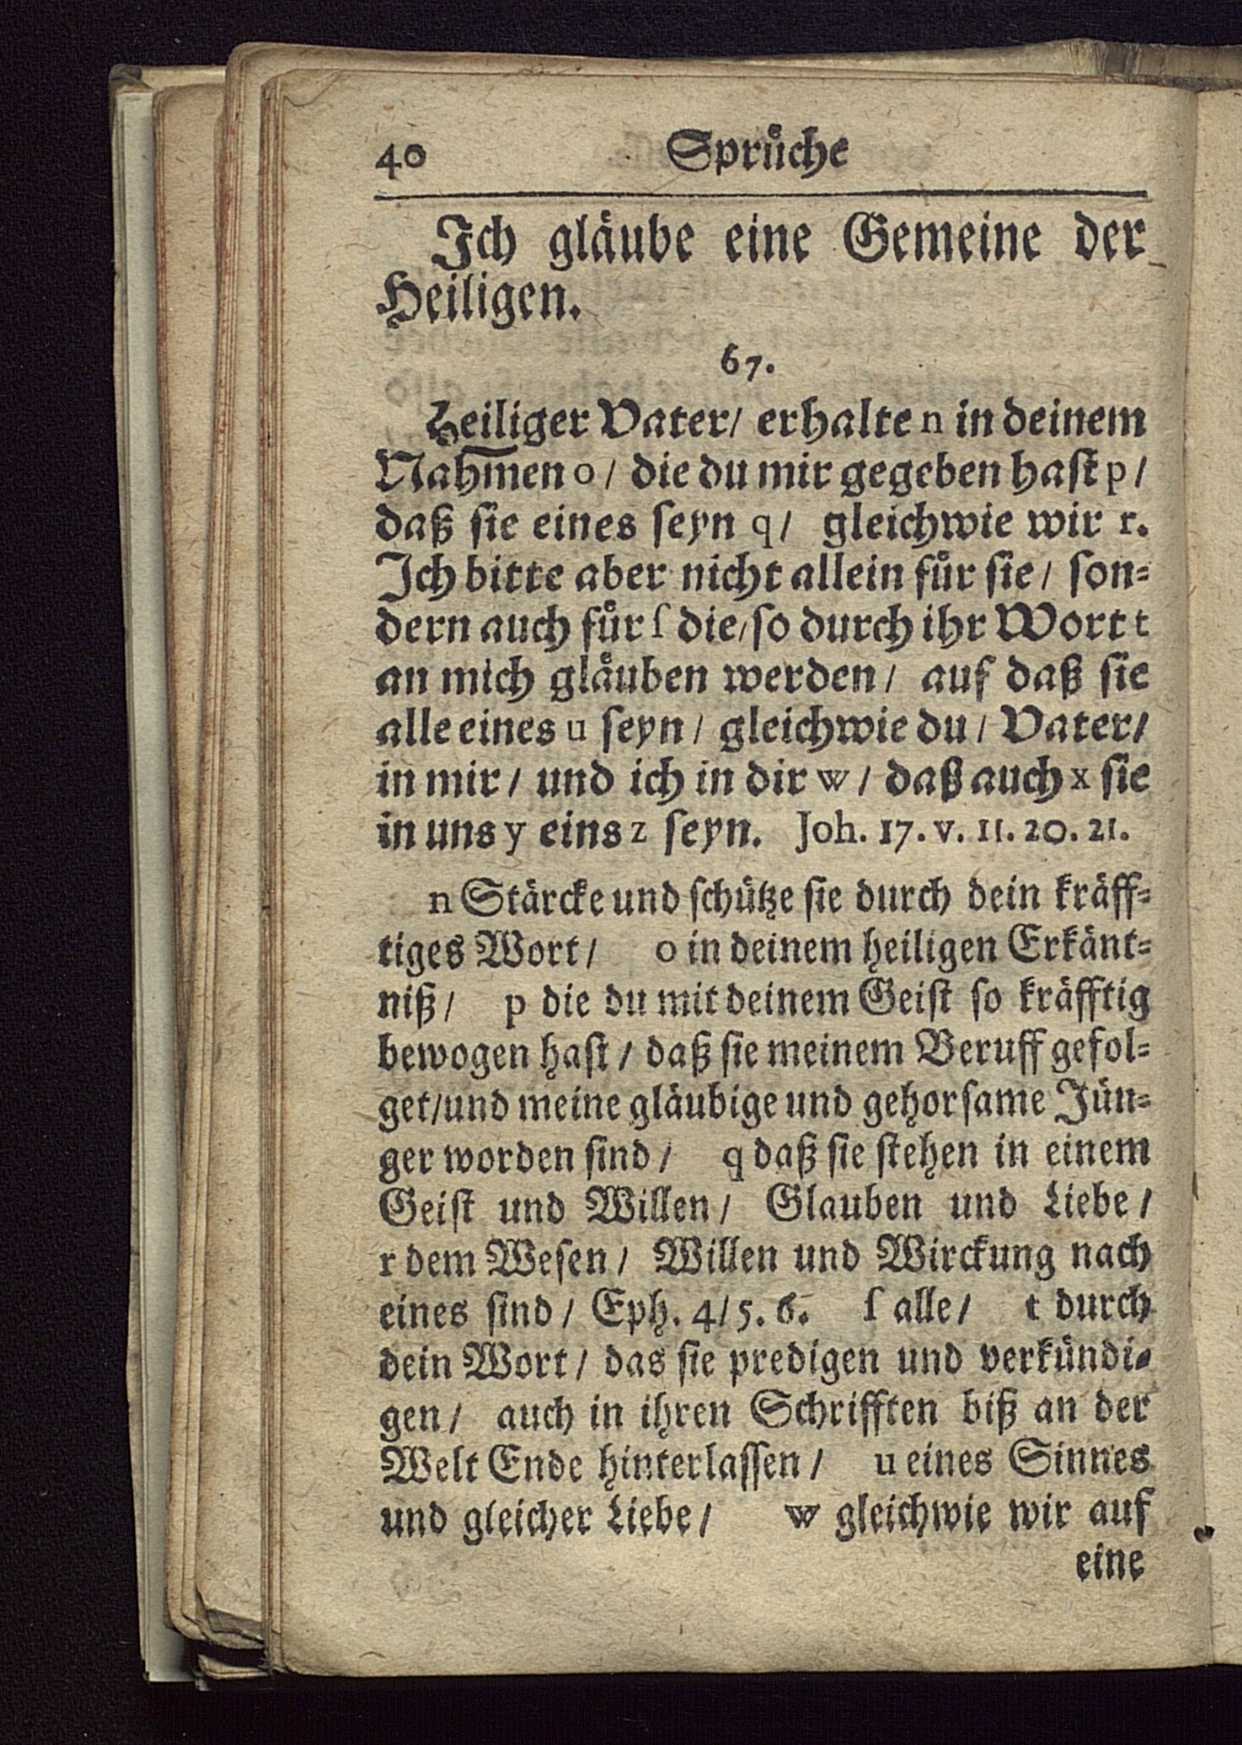 40 Sprüche
Ich gläube eine Gemeine der
Heiligen.
67.
Heiliger Vater/ erhalte n in deinem
Nahmen o/ die du mir gegeben hast p/
daß sie eines seyn q/ gleichwie wir r.
Ich bitte aber nicht allein für sie/ son-
dern auch für ſ die/ so durch ihr Wort t
an mich gläuben werden/ auf daß sie
alle eines u seyn/ gleichwie du/ Vater/
in mir/ und ich in dir w/ daß auch x sie
in uns y eins z seyn. Joh. 17. v. 11. 20. 21.
n Stärcke und schütze sie durch dein kräff-
tiges Wort/ o in deinem heiligen Erkänt-
niß/ p die du mit deinem Geist so kräfftig
bewogen hast/ daß sie meinem Beruff gefol-
get/und meine gläubige und gehorsame Jün-
ger worden sind/ q daß sie stehen in einem
Geist und Willen/ Glauben und Liebe/
r dem Wesen/ Willen und Wirckung nach
eines sind/ Eph. 4/5. 6. ſ alle/ t durch
dein Wort/ das sie predigen und verkündi-
gen/ auch in ihren Schrifften biß an der
Welt Ende hinterlassen/ u eines Sinnes
und gleicher Liebe/ w gleichwie wir auf
eine